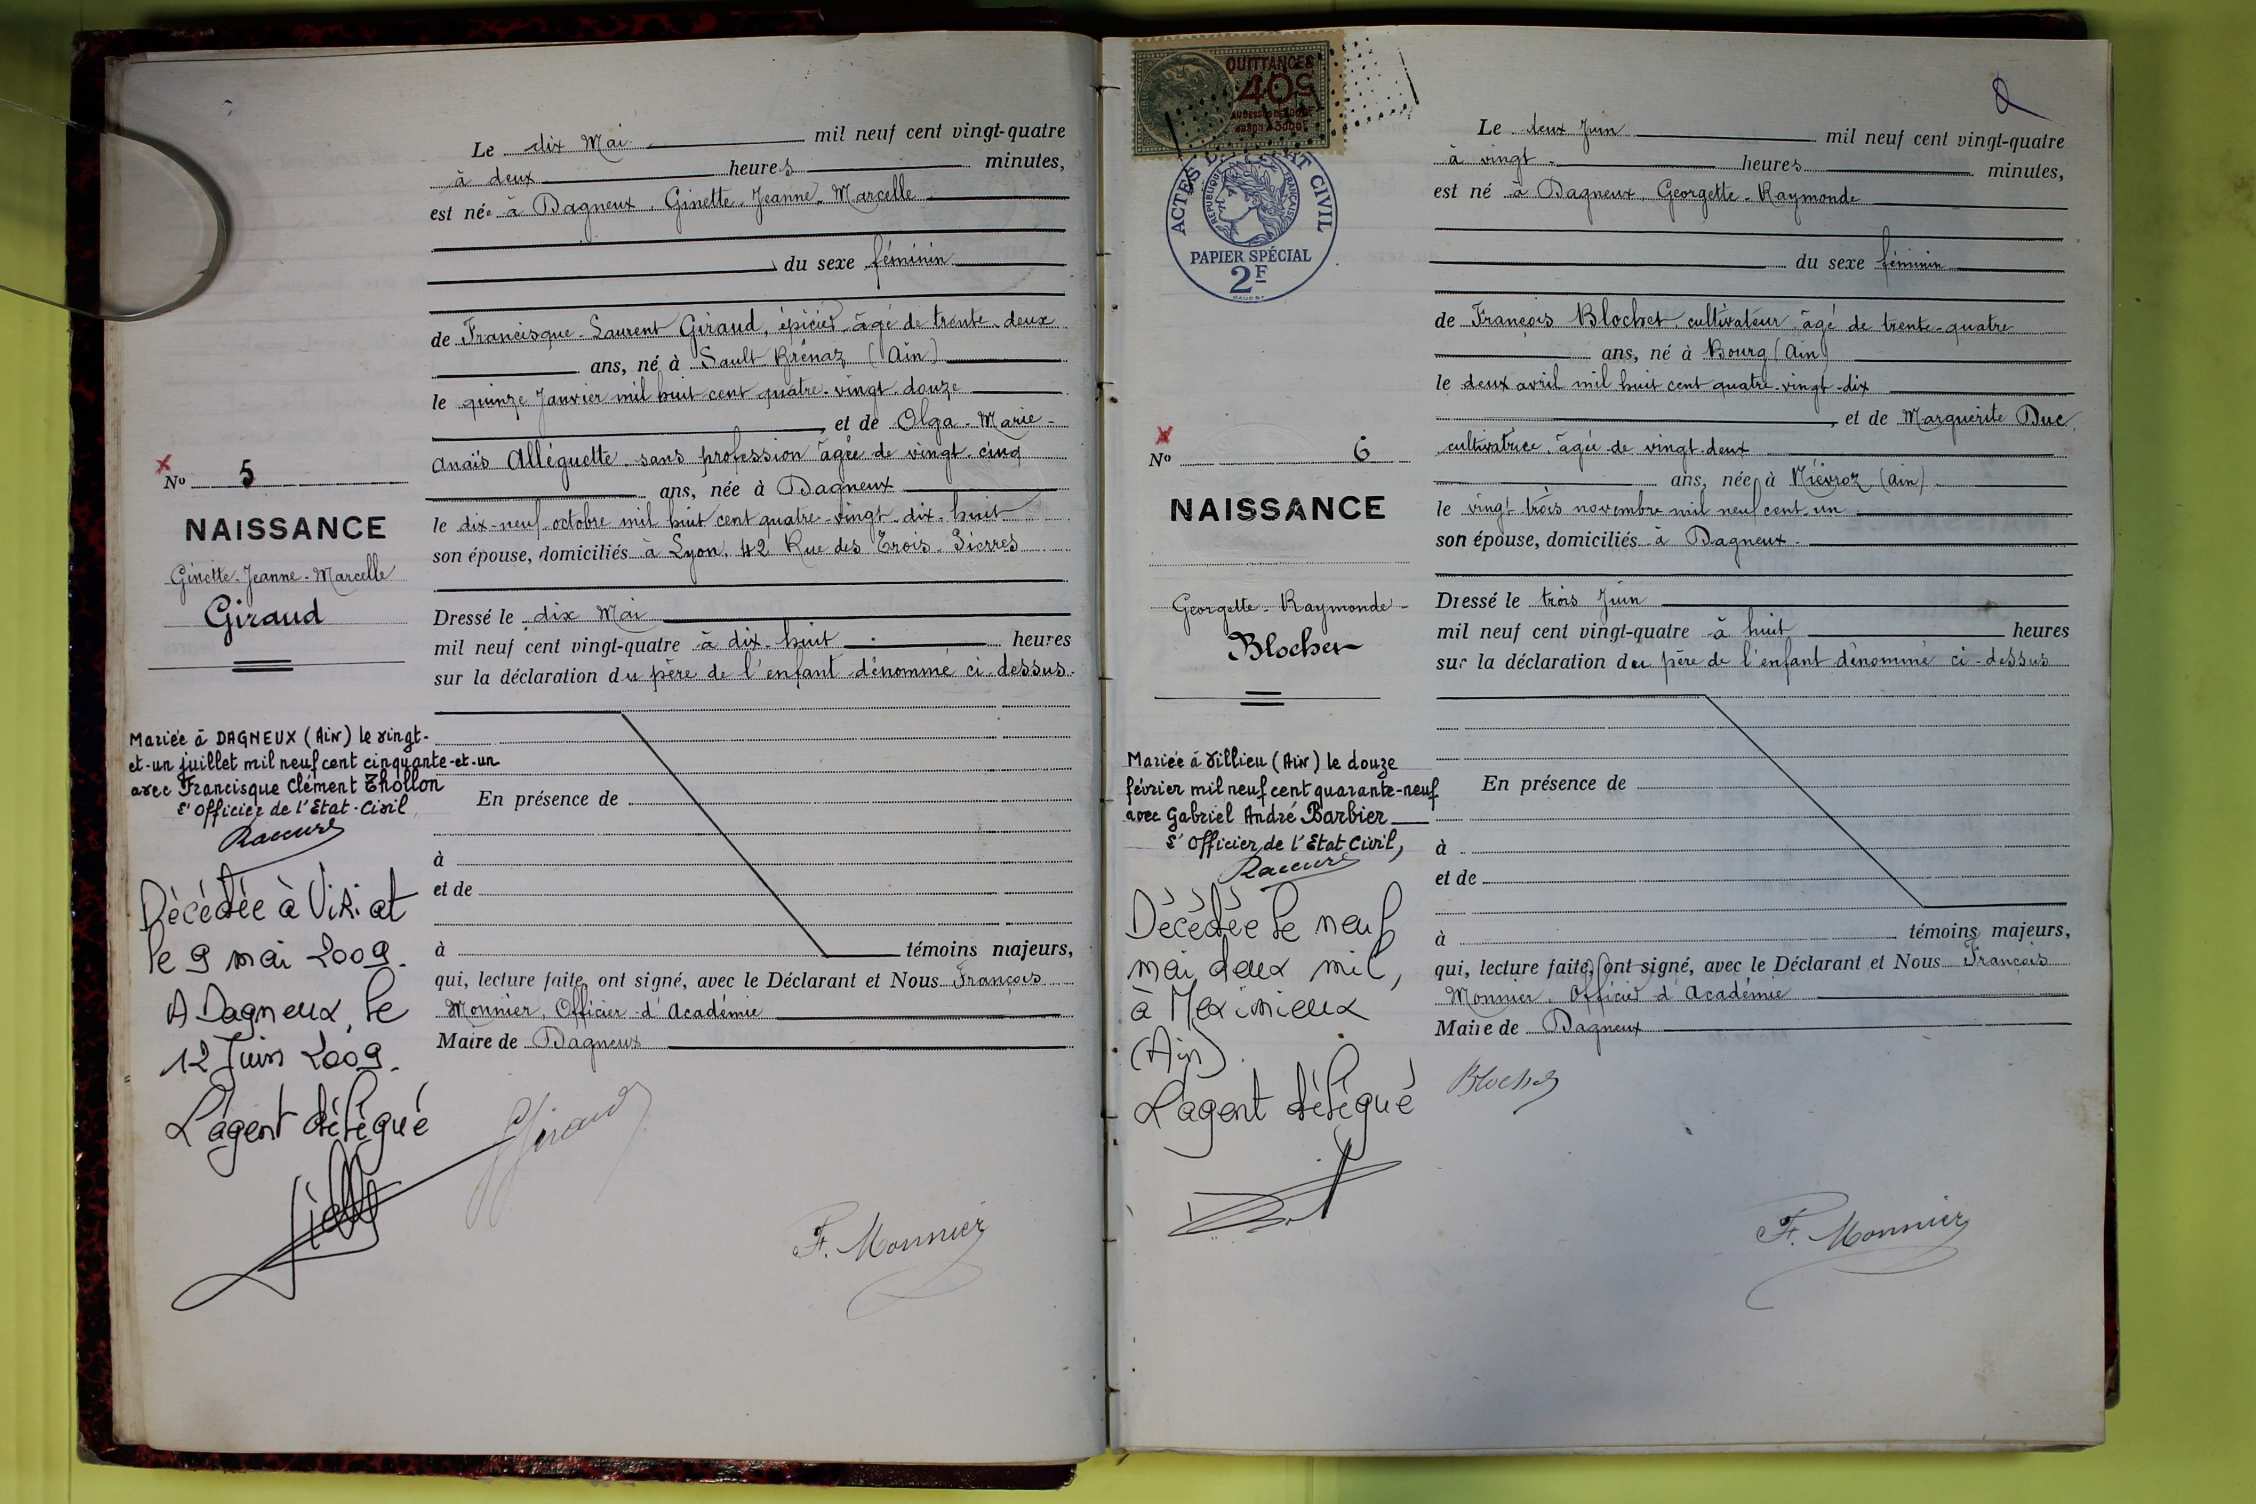 Le dix Mai mil neuf cent vingt-quatre
à deux heures minutes,
est née à Dagneux, Ginette-Jeanne-Marcelle
du sexe féminin
de Francisque-Laurent Giraud, épicier, âgé de trente-deux
ans, né à Sault-Brénaz (Ain)
le quinze Janvier mil huit cent quatre-vingt-douze
et de Olga-Marie-
Anaïs Alléguette, sans profession âgée de vingt-cinq
ans, née à Dagneux
le dix-neuf octobre mil huit cent quatre-vingt-dix-huit
son épouse, domiciliés à Lyon, 42 Rue des Trois-Pierres
Dressé le dix Mai
mil neuf cent vingt-quatre à dix-huit heures
sur la déclaration du père de l'enfant dénommé ci-dessus.
En présence de
à
et de
à témoins majeurs,
qui, lecture faite, ont signé, avec le Déclarant et Nous François
Monnier, Officier d'Académie
Maire de Dagneux
Giraud
F. Monnier
No 5
NAISSANCE
Ginette-Jeanne-Marcelle
Giraud
Mariée à DAGNEUX (Ain) le vingt-
et-un juillet mil neuf cent cinquante-et-un
avec Francisque Clément Thollon
L'Officier de l'Etat-Civil,
Décédée à Viriat
le 9 mai 2009.
A Dagneux, le
12 Juin 2009.
L'agent délégué
QUITTANCES
40c
ACTES DE L'ETAT CIVIL
REPUBLIQUE FRANÇAISE
PAPIER SPÉCIAL
2F
Le deux Juin mil neuf cent vingt-quatre
à vingt heures minutes,
est né à Dagneux, Georgette-Raymonde
du sexe féminin
de François Blochet, cultivateur, âgé de trente-quatre
ans, né à Bourg (Ain)
le deux avril mil huit cent quatre-vingt-dix
et de Marguerite Duc,
cultivatrice, âgée de vingt-deux
ans, née à Niévroz (Ain)
le vingt-trois novembre mil neuf cent un
son épouse, domiciliés à Dagneux
Dressé le trois Juin
mil neuf cent vingt-quatre à huit heures
sur la déclaration du père de l'enfant dénommé ci-dessus
En présence de
à
et de
à témoins majeurs,
qui, lecture faite, ont signé, avec le Déclarant et Nous François
Monnier, Officier d'Académie
Maire de Dagneux
Blochet
F. Monnier
No 6
NAISSANCE
Georgette-Raymonde-
Blochet
Mariée à Villieu (Ain) le douze
février mil neuf cent quarante-neuf
avec Gabriel André Barbier
L'Officier de l'Etat Civil,
Décédée le neuf
mai deux mil,
à Meximieux
(Ain).
L'agent délégué